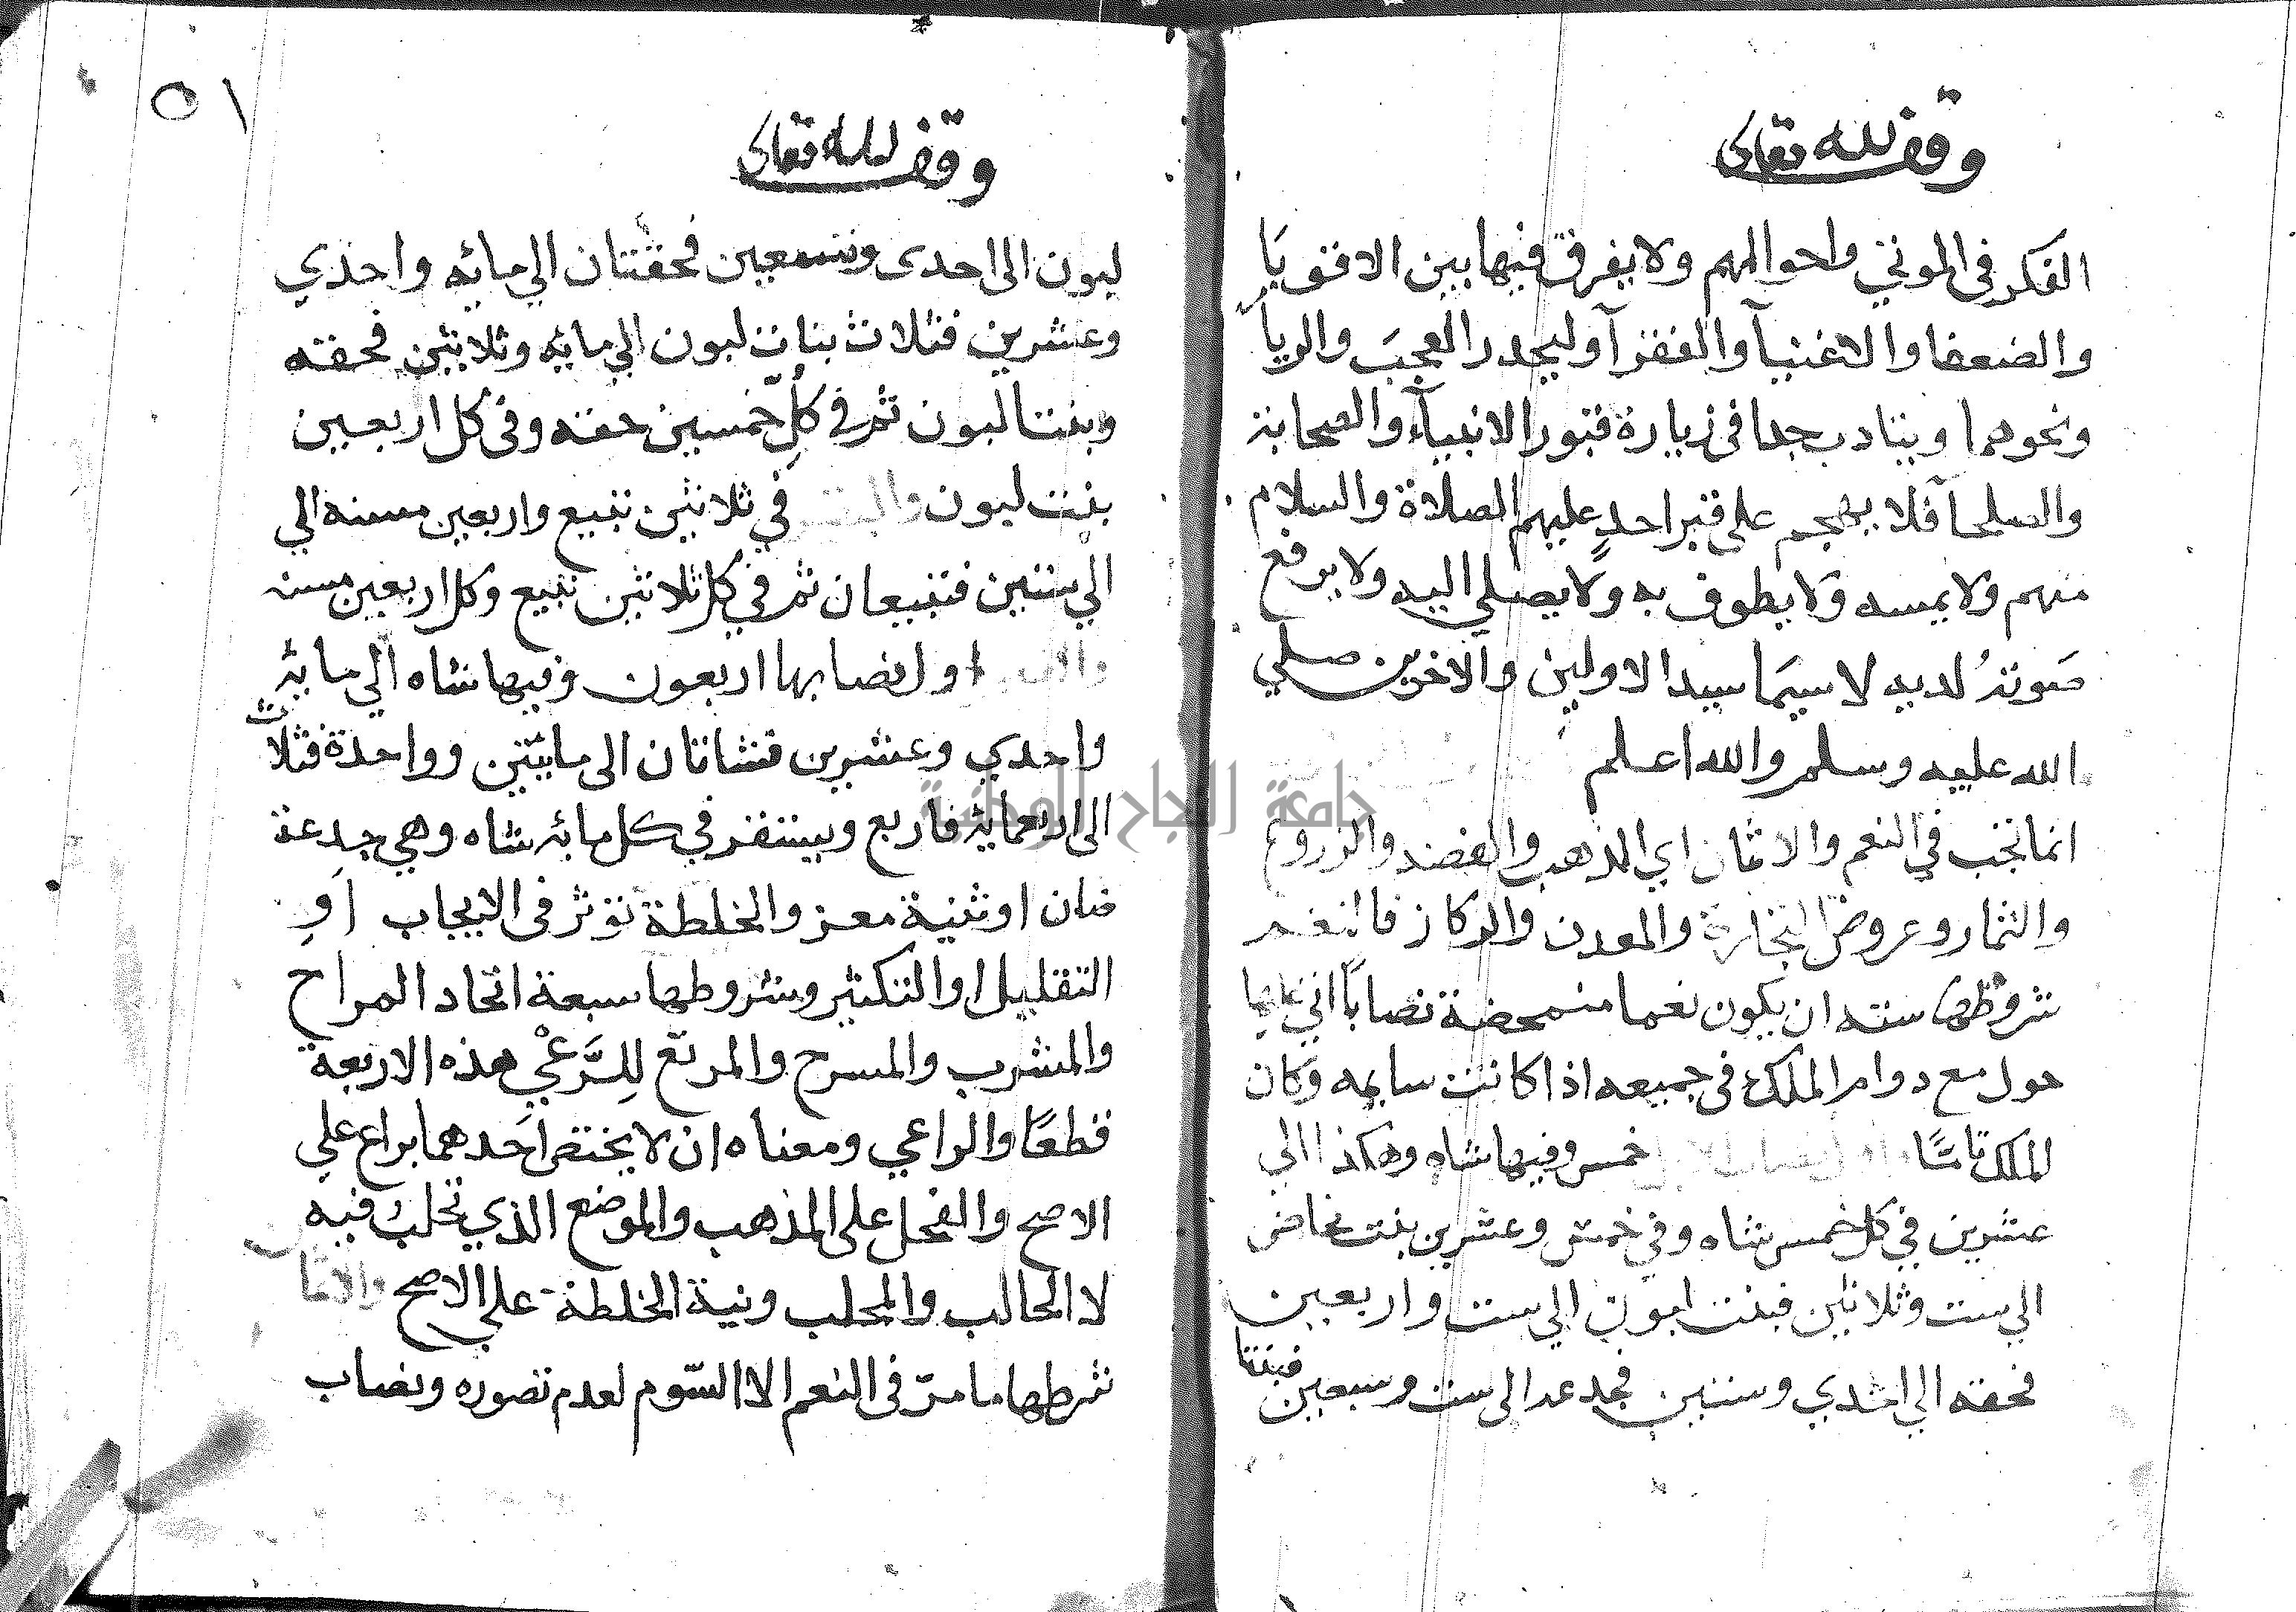 وقف لله تعالى
الفكر في الموتي واحوالهم ولا يفرق فيها بين الاقويا
والضعفا والاغنيآ والفقرآ وليحدر العجب والريآ
ونحوهما ويتادب جدا في زيارة قبور الانبيآء والصحابة
والصلحآ فلا يهجم علي قبر احدٍ عليهم الصلاة والسلام
منهم ولا يمسه ولا يطوف به ولا يصلي اليه ولا يرفع
صوتهُ لديه لا سيما سيد الاولين والاخرين صلي
الله عليه وسلم والله اعلم
انما تجب في النعم والاثمان اي الذهب والفضه والزروع
والثمار وعروض التجارة والمعدن والركاز فالنعم
شروطها سته ان يكون نعما متمحضة نصاباً اتي عليها
حول مع دوام الملك في جميعه اذا كانت سايمه وكان
الملك تامًّا خمس وفيها شاه وهكذا الي
عشرين في كل خمس شاه وفي خمس وعشرين بنت مخاض
الي ست وثلاثين فبنت لبون الي ست واربعين
فحقه الي احدي وستين فجدعه الى ست وسبعين فبنتا
٥١
وقف لله تعالى
لبون الى احدى وتسعين فحقتان الي مايه واحدي
وعشرين فثلاث بنات لبون الي مايه وثلاثين فحقه
وبنتا لبون ثم في كلِّ خمسين حقه وفي كل اربعين
بنت لبون في ثلاثين تبيع واربعين مسنه الي
الي ستين فتبيعان ثم في كل ثلاثين تبيع وكل اربعين مسنه
اول نصابها اربعون وفيها شاه الي مايه
واحدي وعشرين فشاتان الى مايتين وواحدة فثلاث
الى اربعمايه فاربع ويستقر في كل مائه شاه وهي جدعة
ضان او ثنية معز والخلطة تؤثر في الايجاب او
التقليل او التكثير وشروطها سبعة اتحاد المراح
والمشرب والمسرح والمرتع لِلرَّعْيِ هذه الاربعة
قطعًا والراعي ومعناه ان لا يختص احدهما براع علي
الاصح والفحل على المذهب والموضع الذي تحلب فيه
لا الحالب والمحلب ونية الخلطة علي الاصح والاثمان
شرطها ما مرّ في النعم الا السّوم لعدم تصوره ونصاب
جامعة النجاح الوطنية